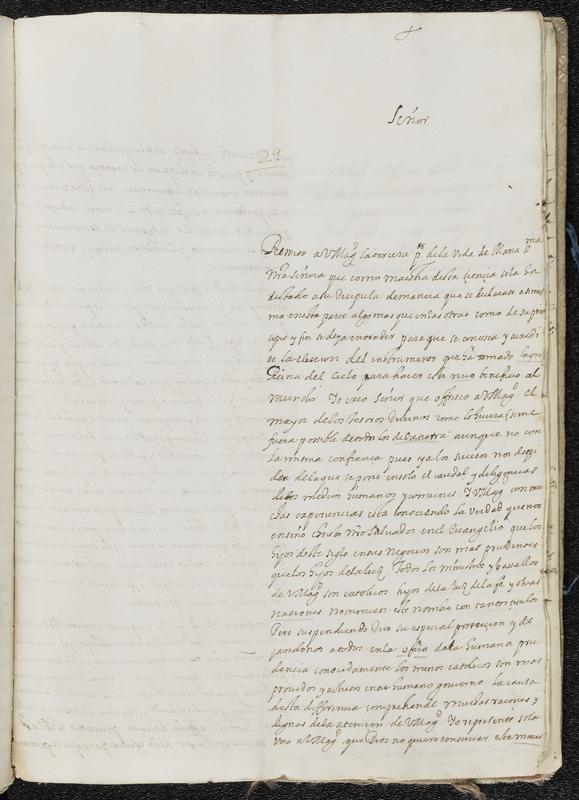 Señor
29
Remito a V Magd la tercera pte de la Vida de Maria sma
nra señora que como maestra desta ciencia se la ha
dictado a su discipula de manera que se declarase a si mis
ma en esta parte algo mas que en las otras como de su pro
que y fin se deja entender para que se conosca y acredi
te la eleccion del instrumento que ha tomado la gran
Reina del Cielo para hacer este nuo beneficio al
mundo Yo creo Señor que offresco a V Magd el
mayor de los tesoros Divinos como lo hiciera si me
fuera posible de todos los de la tierra aunque no con
la misma confiança pues ya los sucesos nos despi
den de la que se pone en solo el caudal y diligencias
de los medios humanos y comunes. Y V Magd con mu
chas experiencias esta conociendo la verdad que nos
enseño christo nro Salvador en el Evangelio que los
hijos deste siglo en sus negocios son mas prudentes
que los hijos de la luz Todos los ministros y vassallos
de V Magd son catolicos hijos de la luz de la fe y otras
naciones no merecen este nombre con tantos titulos
Pero suspendiendo Dios su especial proteccion y de
jandonos a todos en la esfera de la humana pru
dencia conocidamente los menos catolicos son mas
proveidos y astutos en su humano govierno. La causa
desta differencia comprehende muchas raçones y
dignas de la atencion de V Magd Yo represento sola
una a V Magd que Dios no quiere conservar esta monar